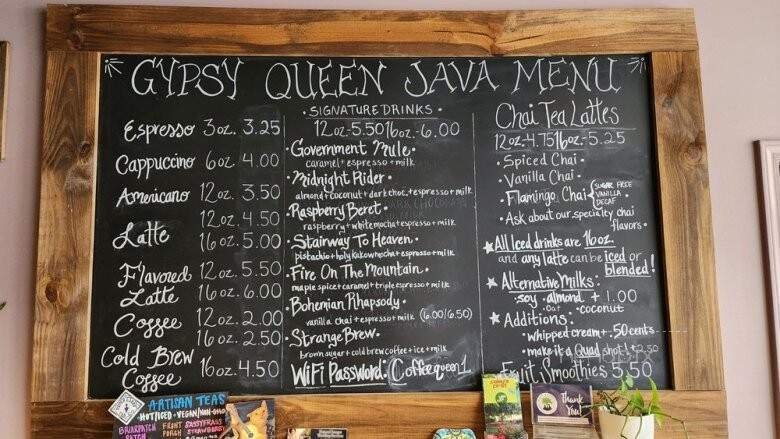 GYPSY QUEEN JAVA MENU
Espresso 3oz. 3.25
Cappuccino 6oz. 4.00
Americano 12oz. 3.50
Latte 12oz. 4.50
16oz. 5.00
Flavored Latte 12oz. 5.50
16oz. 6.00
Coffee 12oz 2.00
16oz 2.50
Cold Brew Coffee 16oz 4.50
• SIGNATURE DRINKS •
12oz-5.50 16oz-6.00
• Government Mule •
caramel + espresso + milk
• Midnight Rider •
almond + coconut + dark choc. + espresso + milk
• Raspberry Beret •
raspberry + white mocha + espresso + milk
• Stairway To Heaven •
pistachio + holy kakow mocha + espresso + milk
• Fire On The Mountain •
maple spice + caramel + triple espresso + milk
• Bohemian Rhapsody •
vanilla chai + espresso + milk (6.00/6.50)
• Strange Brew •
brown sugar + cold brew coffee + ice + milk
WiFi Password: Coffeequeen1
Chai Tea Lattes
12oz-4.75 16oz-5.25
• Spiced Chai •
• Vanilla Chai •
• Flamingo Chai • SUGAR FREE
VANILLA
DECAF
• Ask about our specialty chai
flavors •
All Iced drinks are 16oz
and any latte can be iced or
blended!
Alternative Milks:
soy • almond + 1.00
oat • coconut
Additions:
• whipped cream + .50 cents
• make it a Quad shot! + 2.50
Fruit Smoothies 5.50
ARTISAN TEAS
HOT/ICED • VEGAN
BRIARPATCH
FRONT
PORCH
SASSYFRAS
STRAWBERRY
Thank
You!